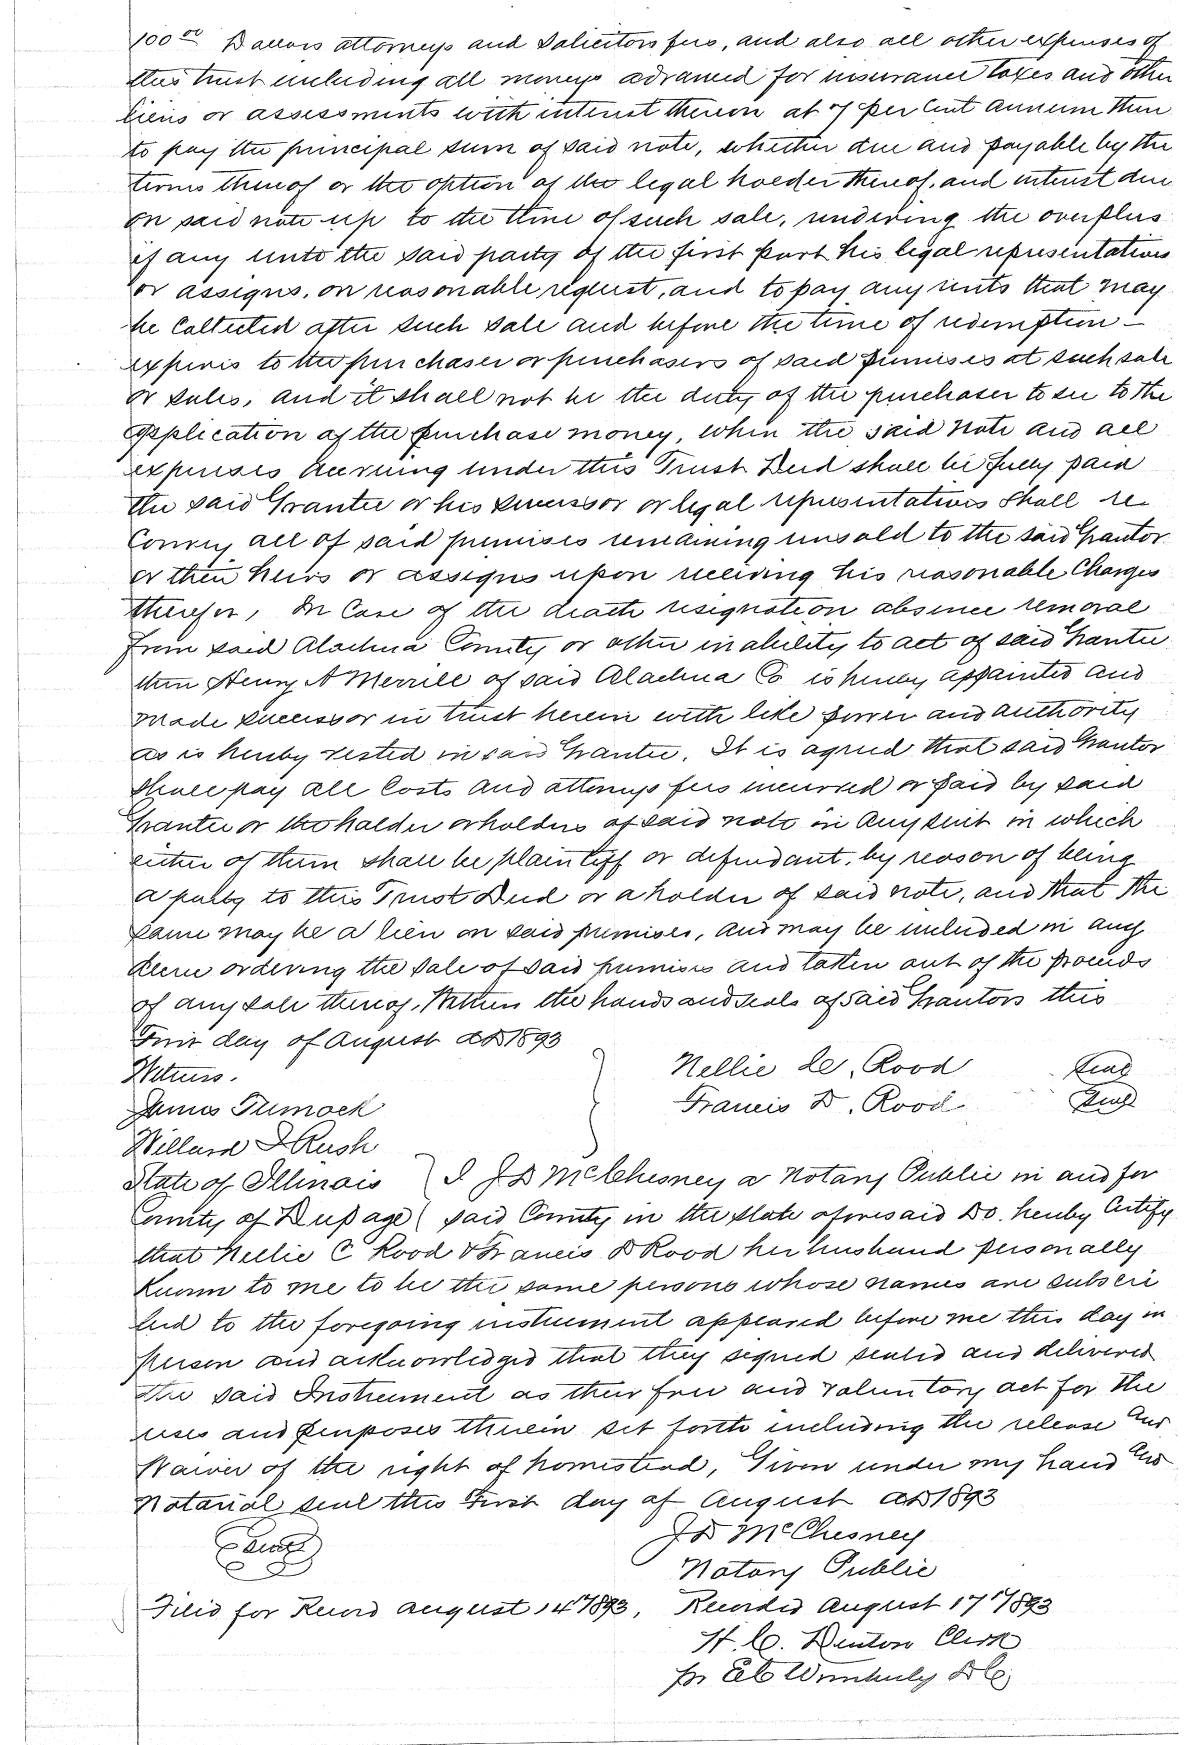 100.00 Dollars attorneys and Solicitors fees, and also all other expenses of
this trust including all moneys advanced for insurance taxes and other
liens or assessments with interest thereon at 7 per cent annum then
to pay the principal sum of said note, whether due and payable by the
terms thereof or the option of the legal holder thereof, and interest due
on said note up to the time of such sale, rendering the overplus
if any unto the said party of the first part his legal representatives
or assigns, on reasonable request, and to pay any rents that may
be collected after such sale and before the time of redemption -
expires to the purchaser or purchasers of said premises at such sale
or sales, and it shall not be the duty of the purchaser to see to the
application of the purchase money, When the said note and all
expenses accruing under this Trust Deed shall be fully paid
the said Grantee or his successor or legal representatives shall re-
convey all of said premises remaining unsold to the said Grantor
or their heirs or assigns upon receiving his reasonable Charges
therefor, In Case of the death resignation absence removal
from said Alachua County or other inability to act of said Grantee
then Henry A Merrill of said Alachua Co is hereby appointed and
made successor in trust herein with like power and authority
as is hereby vested in said Grantee. It is agreed that said Grantor
shall pay all Costs and attorneys fees incurred or paid by said
Grantee or the holder or holders of said note in any suit in which
either of them shall be plaintiff or defendant, by reason of being
a party to this Trust Deed or a holder of said note, and that the
same may be a lien on said premises, and may be included in any
decree ordering the sale of said premises and taken out of the proceeds
of any sale thereof, Witness the hands and seals of said Grantors this
First day of August AD 1893
Witness.
Nellie C. Rood Seal
James Tumock
Francis D. Rood Seal
Willard J Rush
State of Illinois } I J D McChesney a Notary Public in and for
County of Dupage { said County in the state aforesaid Do hereby Certify
that Nellie C Rood & Francis D Rood her husband personally
known to me to be the same persons whose names are subscri
bed to the foregoing instrument appeared before me this day in
person and acknowledged that they signed sealed and delivered
the said Instrument as their free and voluntary act for the
uses and purposes therein set forth including the release and
Waiver of the right of homestead, Given under my hand and
Notarial seal this First day of August AD 1893
J D McChesney
Seal
Notary Public
Filed for Record August 14th 1893, Recorded August 17th 1893
H. C. Denton Clerk
per E C Wimberly D C